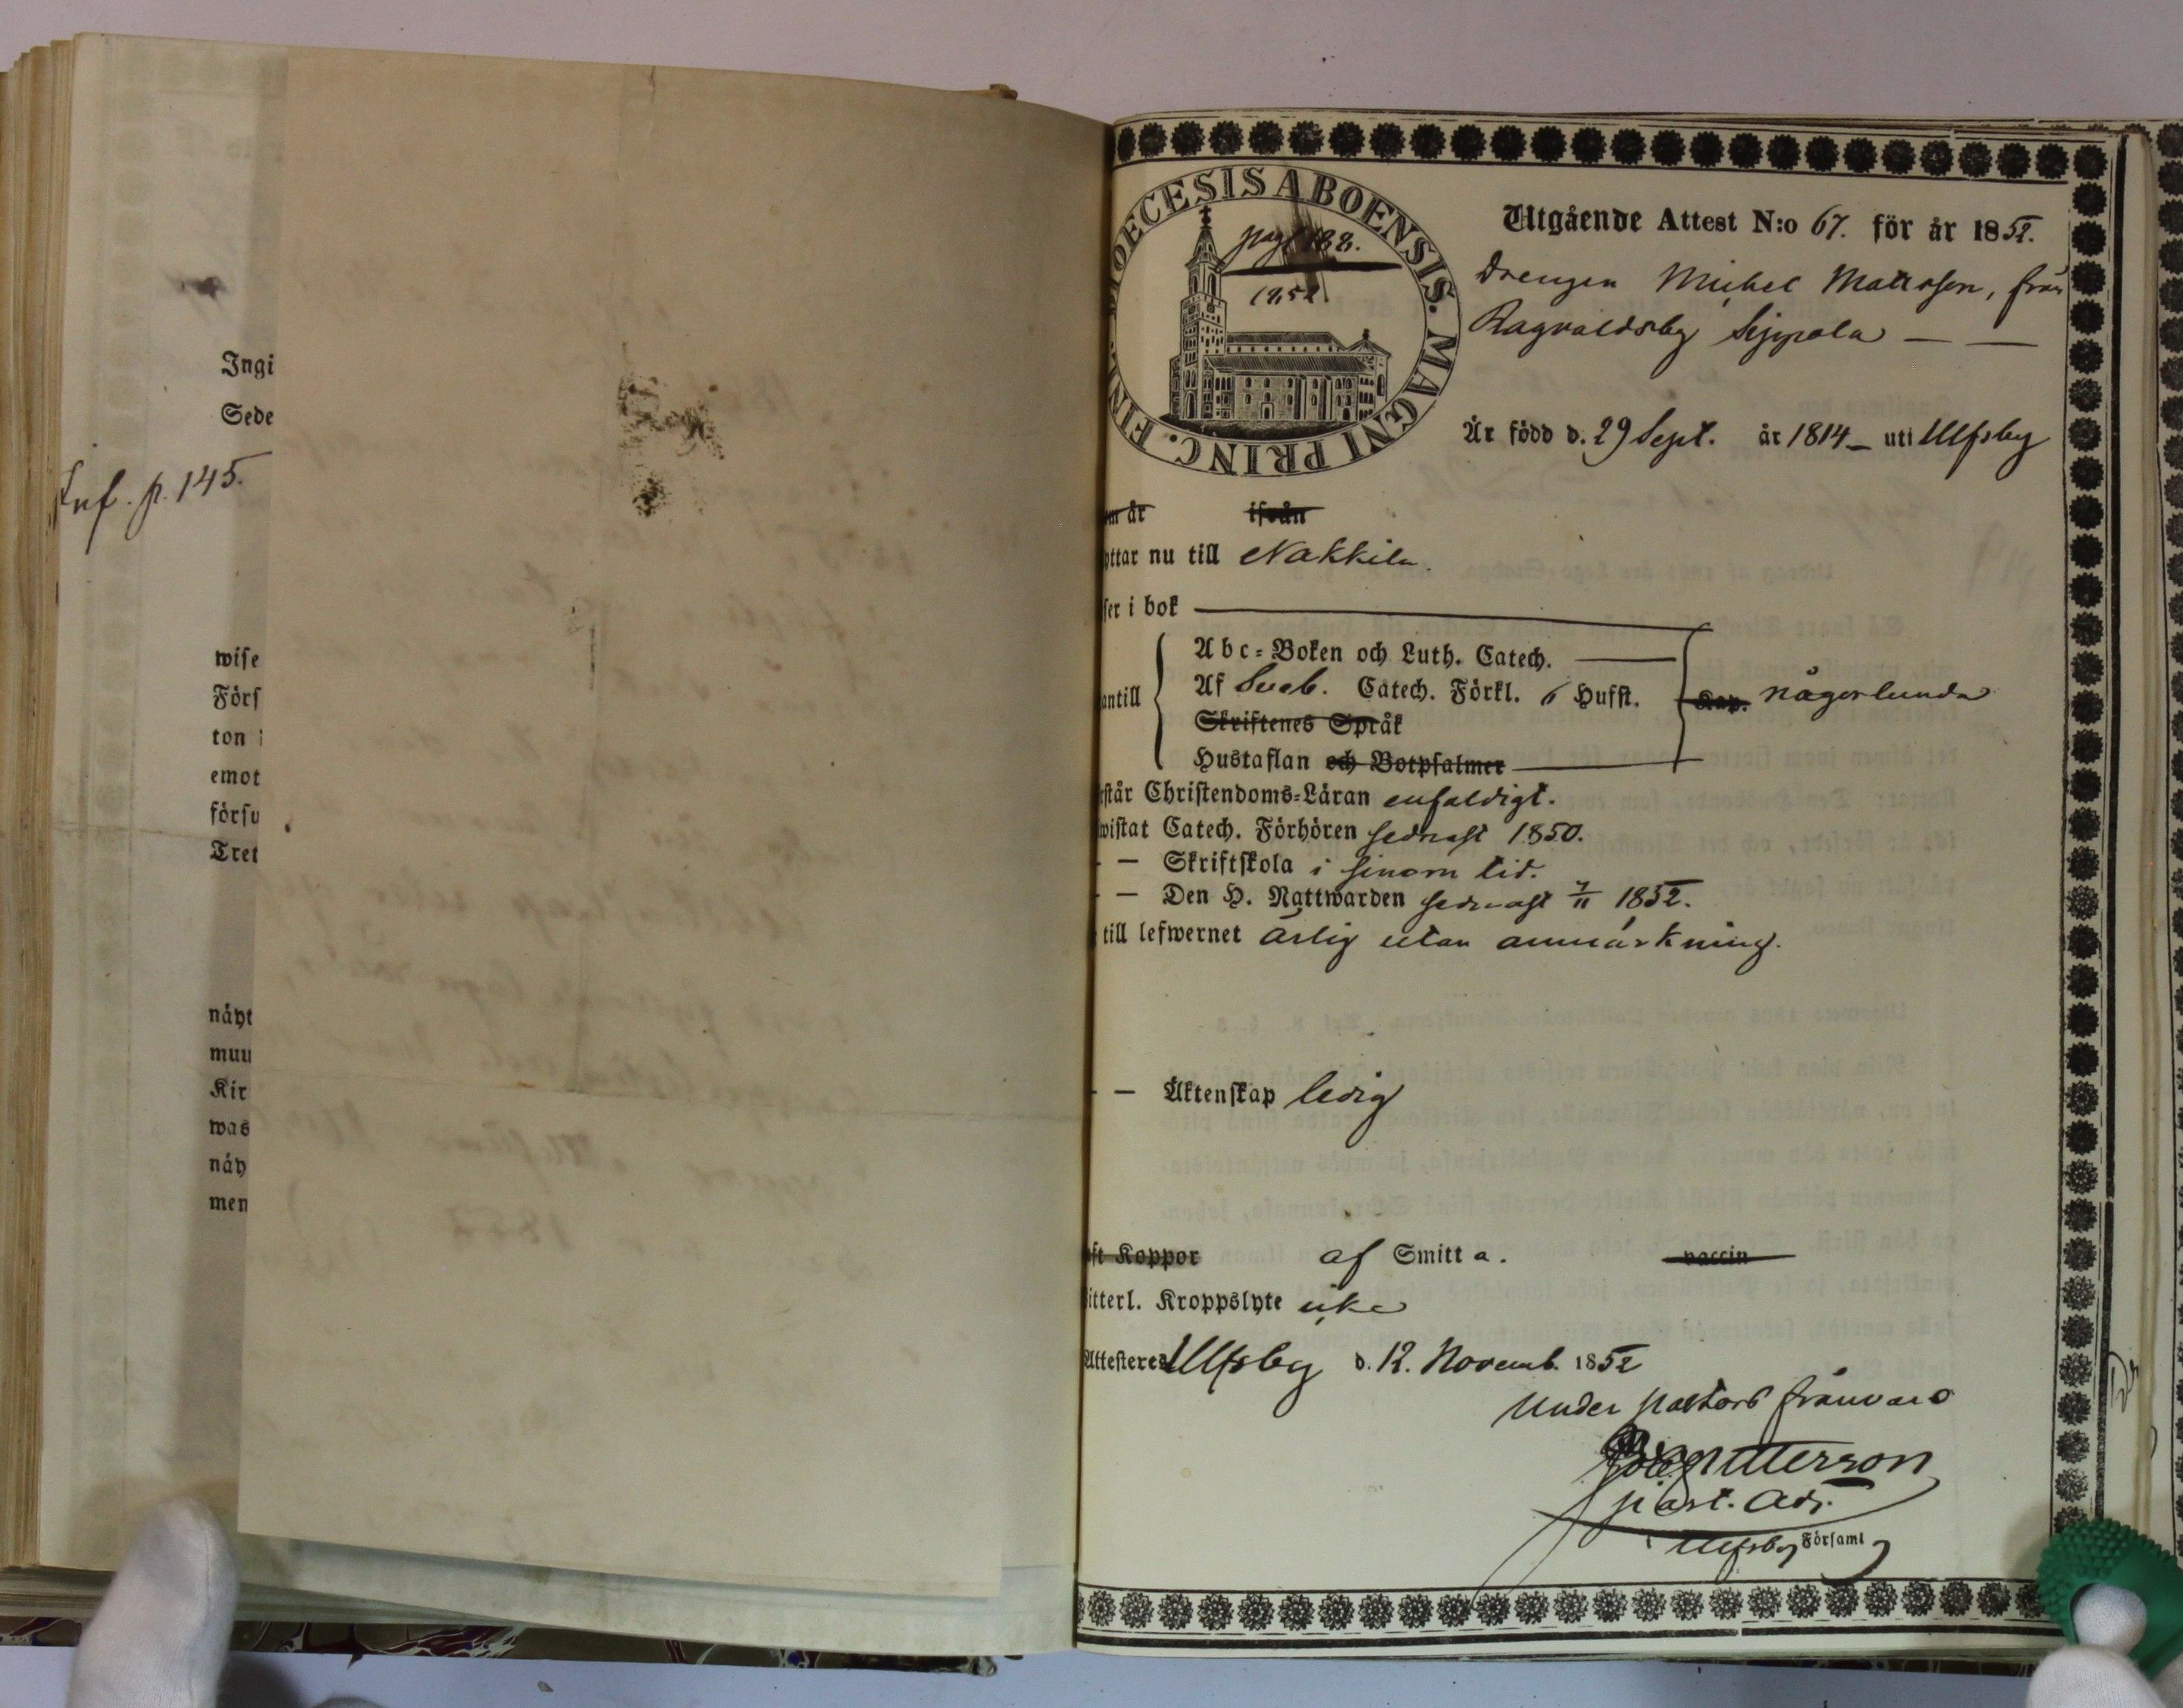 Ingi
Sede
Inf. p. 145.
wise
Förs
ton
emot
försu
Tret
näyt
muu
Kir
was
näy
men
DIOECESIS ABOENSIS. MAGNI PRINC. FINL.
pag 188.
1852
Utgående Attest N:o 67. för år 1852.
Drengen Michel Mattsson, från
Ragvaldsby Seppala
Är född d. 29 Sept. år 1814 uti Ulfsby
m år ifrån
yttar nu till Nakkila.
ser i bok
Abc-Boken och Luth. Catech.
antill Af Sveb. Catech. Förkl. 6 Hufst. Kap. någorlunda
Skriftenes Språk
Hustaflan och Botpsalmer
rstår Christendoms-Läran enfaldigt.
wistat Catech. Förhören sednast 1850.
— Skriftskola i sinom tid.
— Den H. Nattwarden sednast 7/11 1852.
till lefwernet ärlig utan anmärkning.
— Äktenskap ledig
ft Koppor af Smitt a. vaccin
itterl. Kroppslyte icke
Attesteres Ulfsby d. 12. Novemb. 1852
Under pastors frånvaro
past. Adj.
i Ulfsby Församl